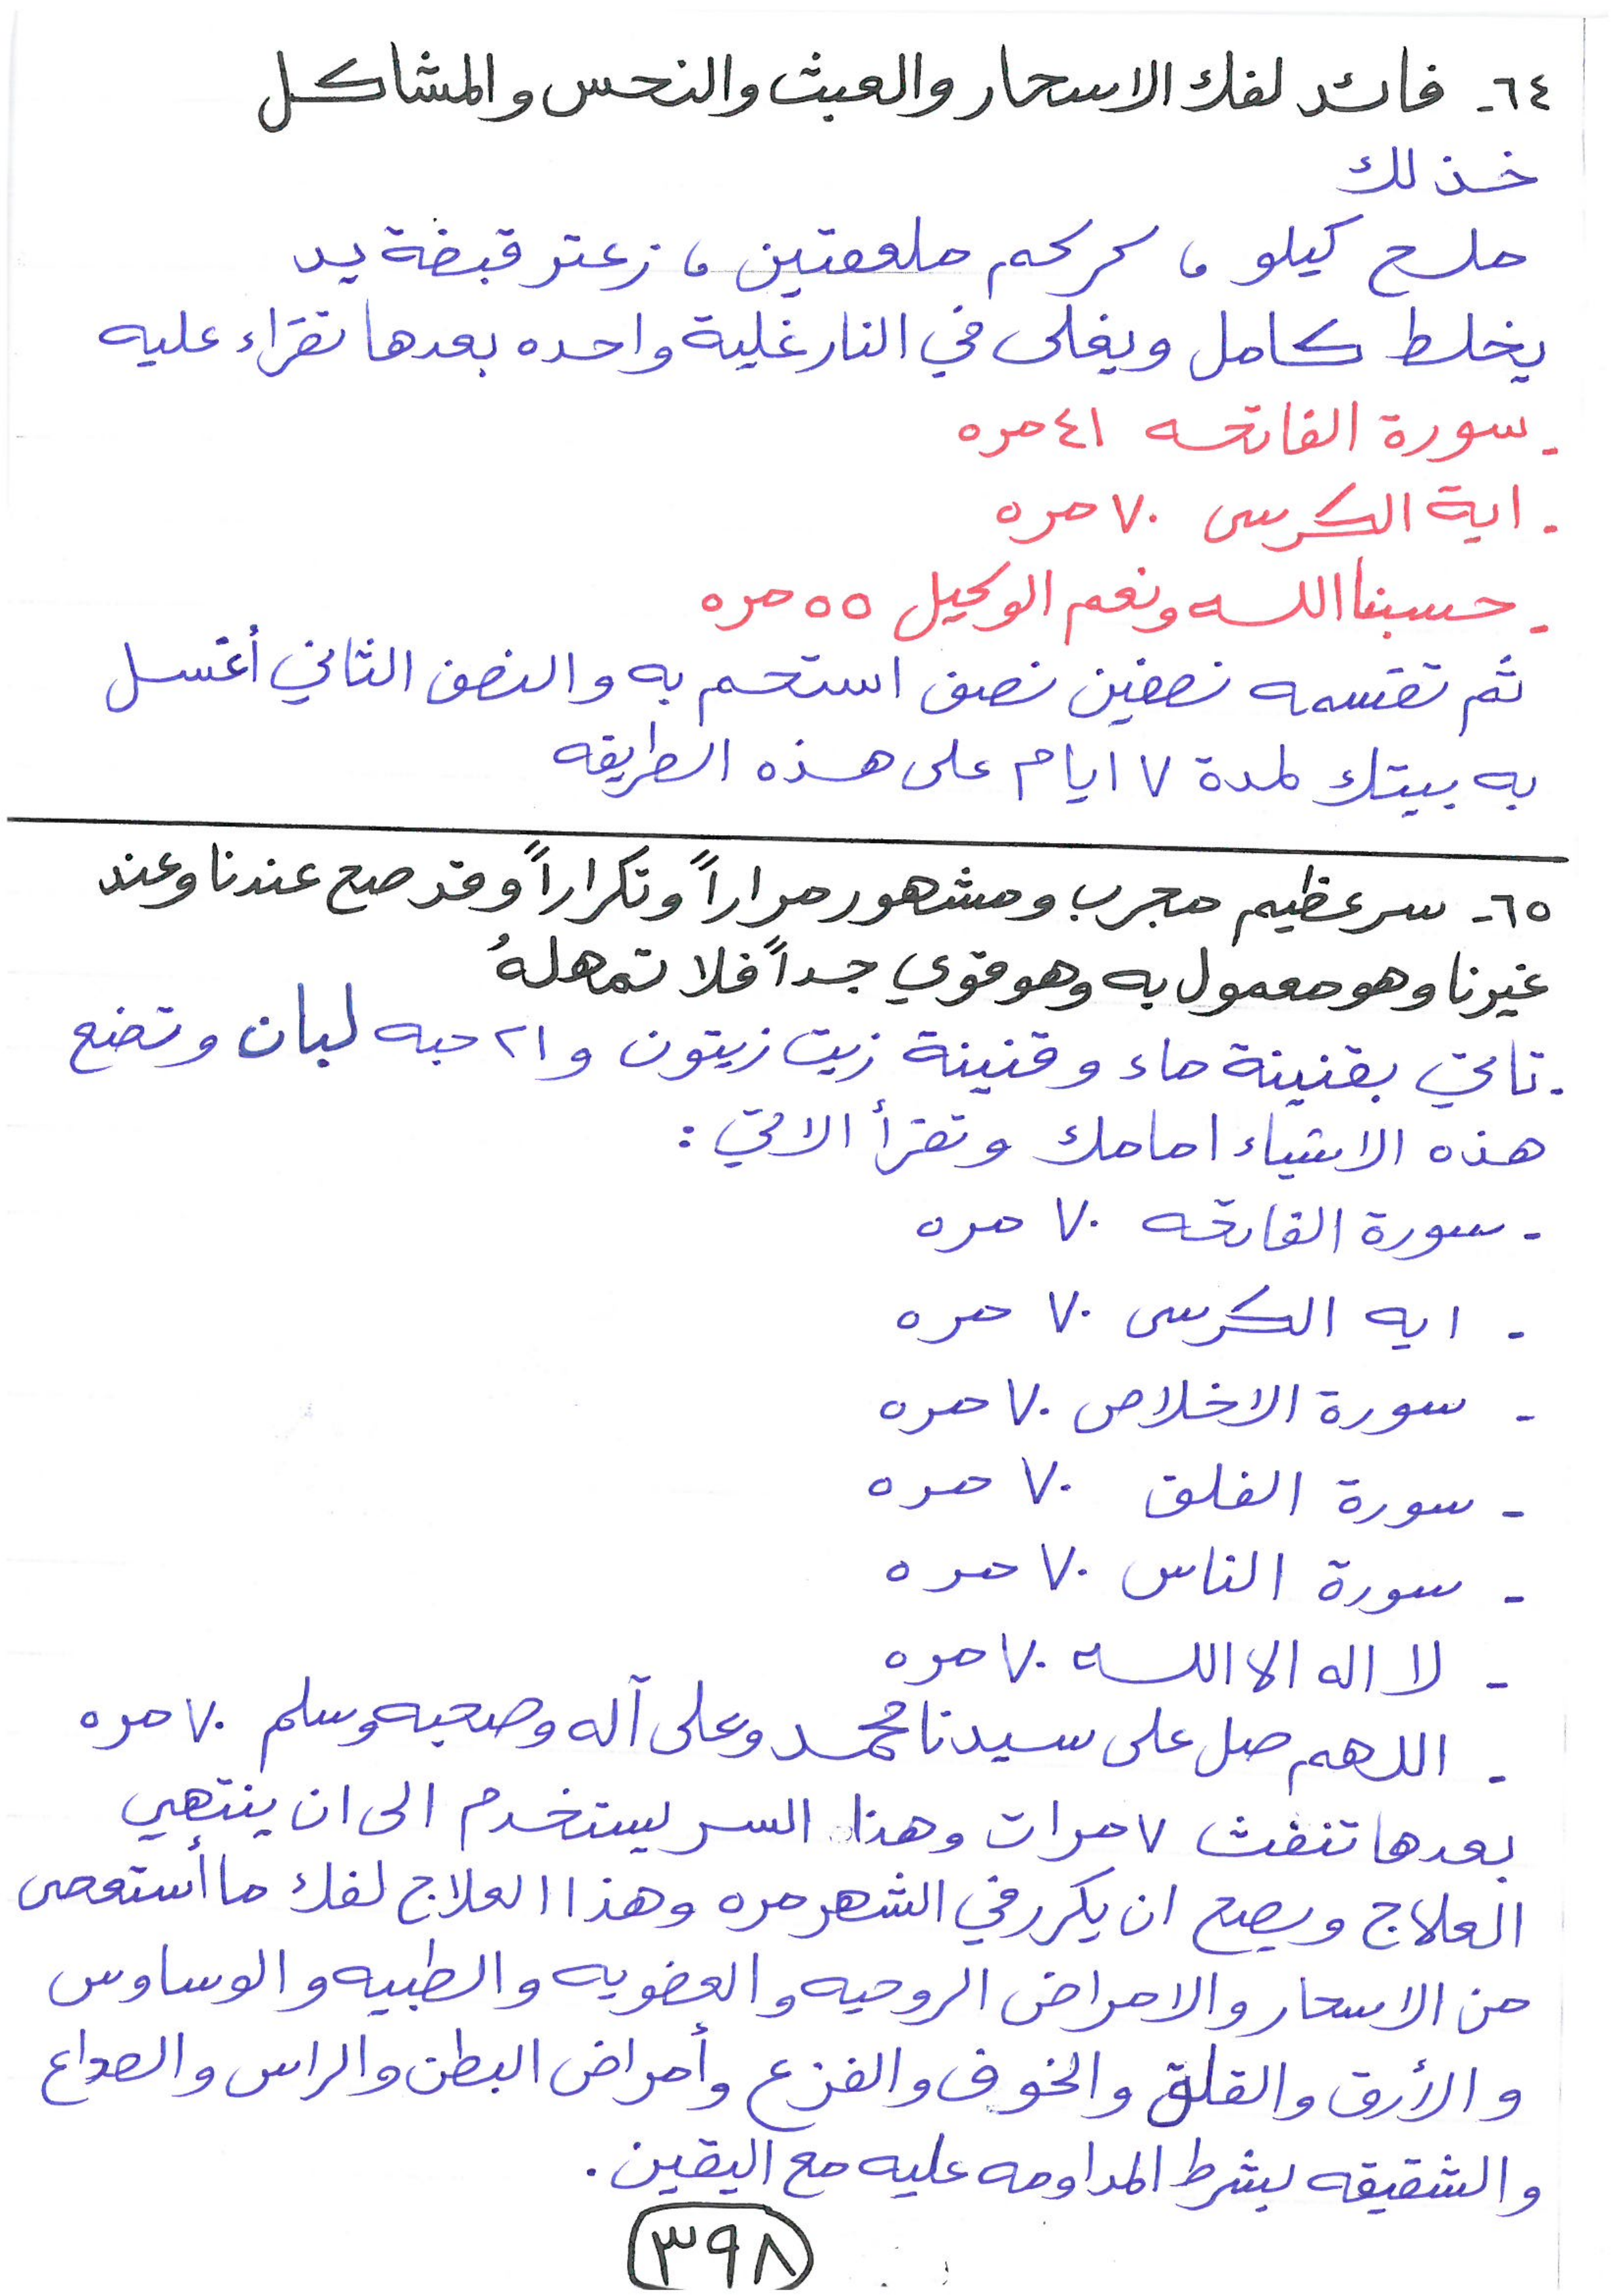 ٦٤- فائد لفك الاسحار والعبث والنحس والمشاكل
خذ لك
ملح كيلو ، كركم ملعقتين ، زعتر قبضة يد
يخلط كامل ويغلى في النار غلية واحده بعدها تقراء عليه
- سورة الفاتحه ٤١ مره
- اية الكرسى ٧٠ مره
- حسبنا الله ونعم الوكيل ٥٥ مره
ثم تقسمه نصفين نصف استحم به والنصف الثاني أغسل
به بيتك لمدة ٧ ايام على هذه الطريقه
٦٥- سر عظيم مجرب ومشهور مراراً وتكراراً وقد صح عندنا وعند
غيرنا وهو معمول به وهو قوي جداً فلا تمهلهُ
- تاتي بقنينة ماء وقنينة زيت زيتون و ٢١ حبه لبان وتضع
هذه الاشياء امامك وتقرأ الاتي :
- سورة الفاتحه ٧٠ مره
- ايه الكرسى ٧٠ مره
- سورة الاخلاص ٧٠ مره
- سورة الفلق ٧٠ مره
- سورة الناس ٧٠ مره
- لا اله الا الله ٧٠ مره
- اللهم صل على سيدنا محمد وعلى آله وصحبه وسلم ٧٠ مره
بعدها تنفث ٧ مرات وهذا السر يستخدم الى ان ينتهي
العلاج ويصح ان يكرر في الشهر مره وهذا العلاج لفك ما أستعصى
من الاسحار والامراض الروحيه والعضويه والطبيه والوساوس
والأرق والقلق والخوف والفزع وأمراض البطن والراس والصداع
والشقيقه بشرط المداومه عليه مع اليقين .
٣٩٨